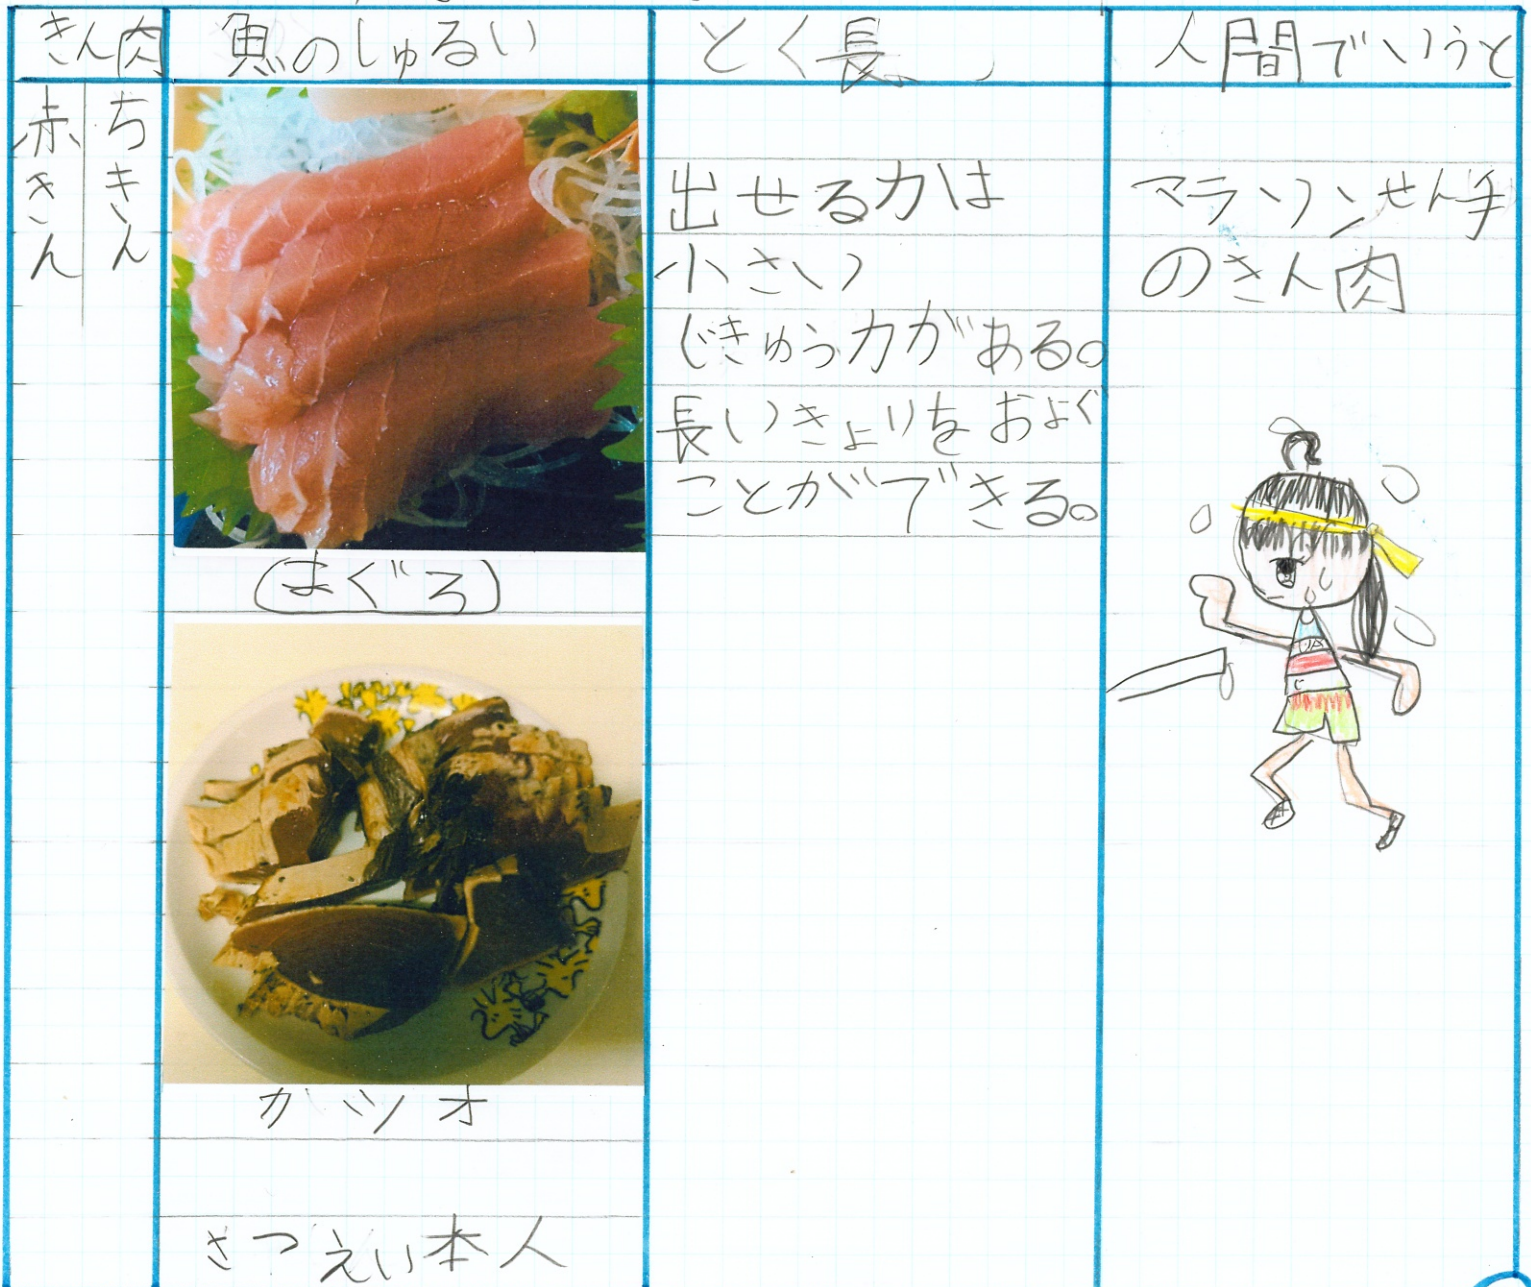 きん肉
魚のしゅるい
とく長
人間でいうと
赤きん
ちきん
(まぐろ)
カツオ
さつえい本人
出せる力は
小さい
じきゅう力がある。
長いきょりをおよぐ
ことができる。
マラソンせん手
のきん肉